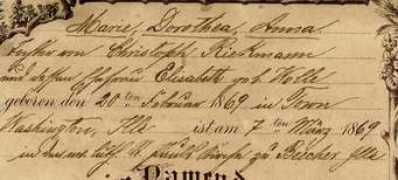 Marie, Dorothea, Anna
Tochter von Christoph Rickmann
und dessen Ehefrau Elisabeth geb. Holle
geboren den 20ten Februar 1869 in Town
Washington, Ills ist am 7ten März 1869
in der ev. luth. St. Pauls Kirche zu Beecher Ills
Namen d